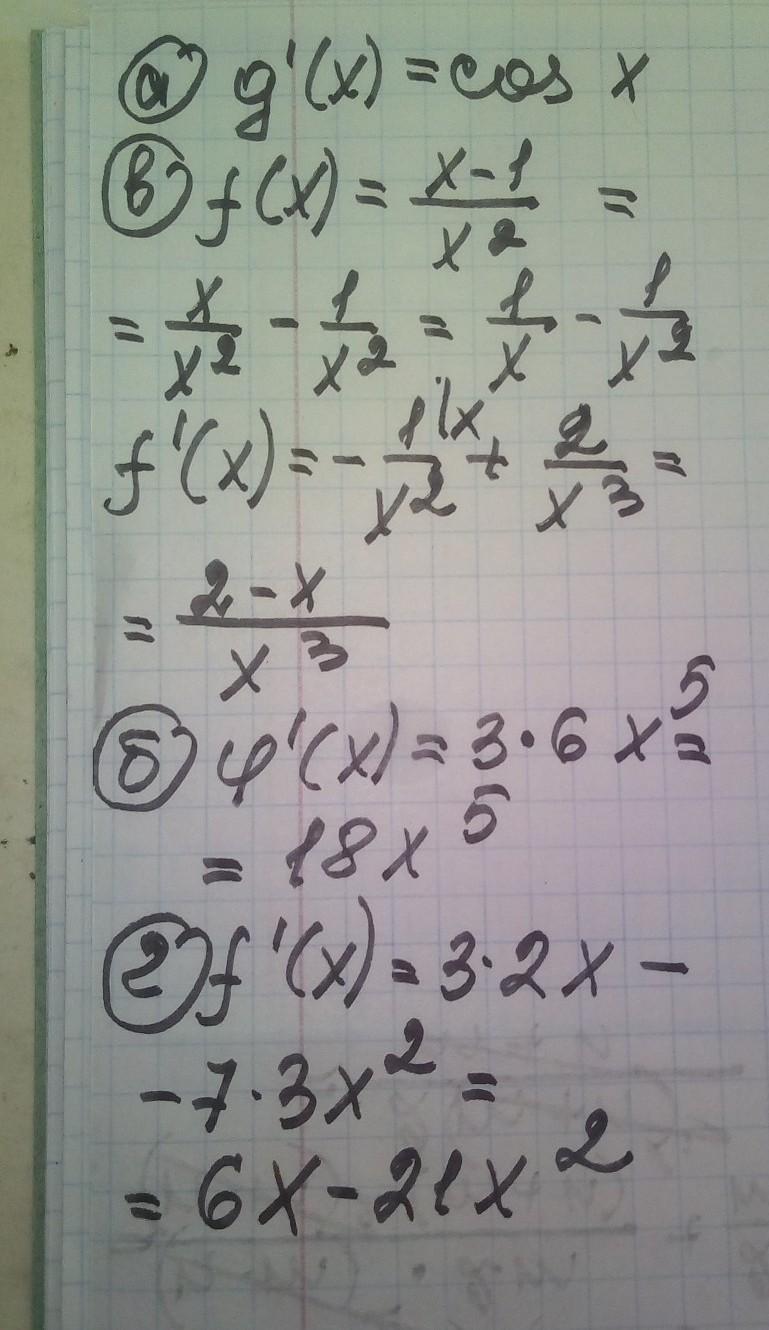 а) g'(x) = cos x
в) f(x) = (x-1)/x² =
= x/x² - 1/x² = 1/x - 1/x²
f'(x) = - 1\x/x² + 2/x³ =
= (2-x)/x³
б) φ'(x) = 3·6x⁵ =
= 18x⁵
г) f'(x) = 3·2x -
- 7·3x² =
= 6x - 21x²